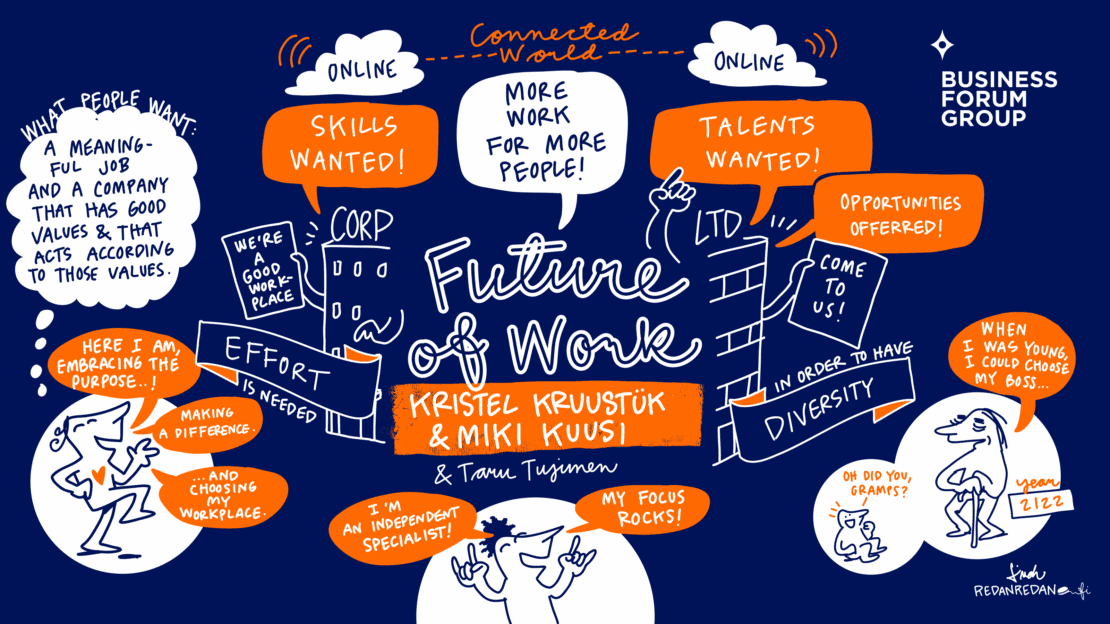 Connected
World
ONLINE
ONLINE
BUSINESS
FORUM
GROUP
WHAT PEOPLE WANT:
A MEANING-
FUL JOB
AND A COMPANY
THAT HAS GOOD
VALUES & THAT
ACTS ACCORDING
TO THOSE VALUES.
SKILLS
WANTED!
MORE
WORK
FOR MORE
PEOPLE!
TALENTS
WANTED!
OPPORTUNITIES
OFFERRED!
CORP
LTD
WE'RE
A
GOOD
WORK-
PLACE
COME
TO
US!
Future
of Work
KRISTEL KRUUSTÜK
& MIKI KUUSI
& Taru Tujunen
EFFORT
IS NEEDED
IN ORDER TO HAVE
DIVERSITY
HERE I AM,
EMBRACING THE
PURPOSE..!
MAKING
A DIFFERENCE.
...AND
CHOOSING
MY
WORKPLACE.
I'M
AN INDEPENDENT
SPECIALIST!
MY FOCUS
ROCKS!
WHEN
I WAS YOUNG,
I COULD CHOOSE
MY BOSS...
OH DID YOU,
GRAMPS?
year
2122
REDANREDAN